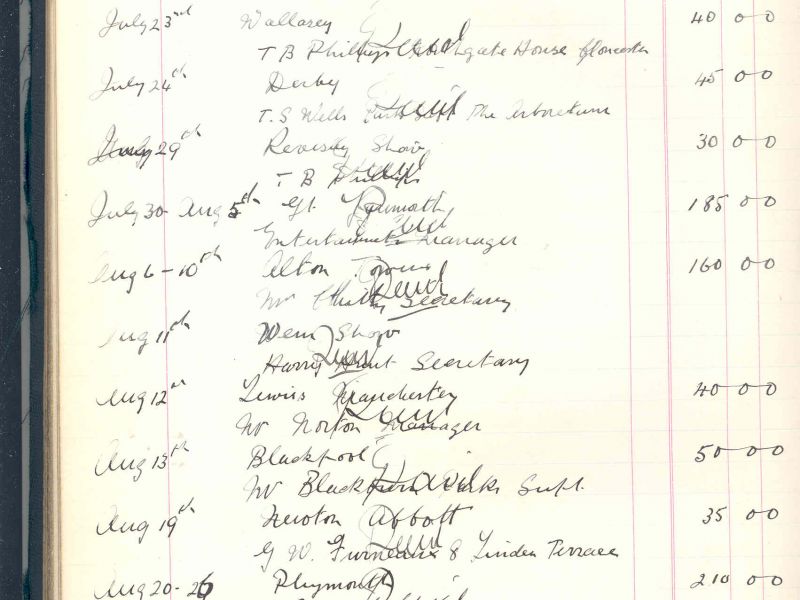 July 23rd Wallasey 40 0 0
T B Phillips Southgate House Gloucester
July 24th Derby 45 0 0
T. S. Wells Parks Supt The Arboretum
July 29th Revesby Show 30 0 0
T B Phillips
July 30 - Aug 5th Gt Yarmouth 185 0 0
Entertainments Manager
Aug 6 - 10th Alton Towers 160 0 0
Mr Secretary
Aug 11th Wem Show
Harry Secretary
Aug 12th Lewis Manchester 40 0 0
Mr Norton Manager
Aug 13th Blackpool 50 0 0
Mr Parks Supt.
Aug 19th Newton Abbott 35 0 0
G W. Furneaux 8 Linden Terrace
Aug 20-26 Plymouth 210 0 0